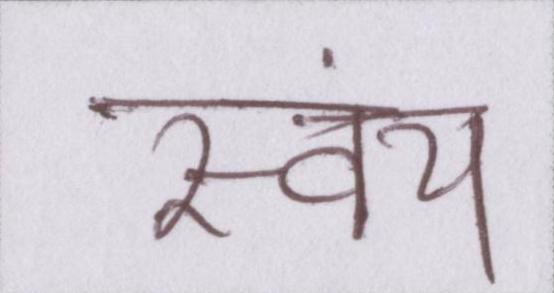 स्वंय